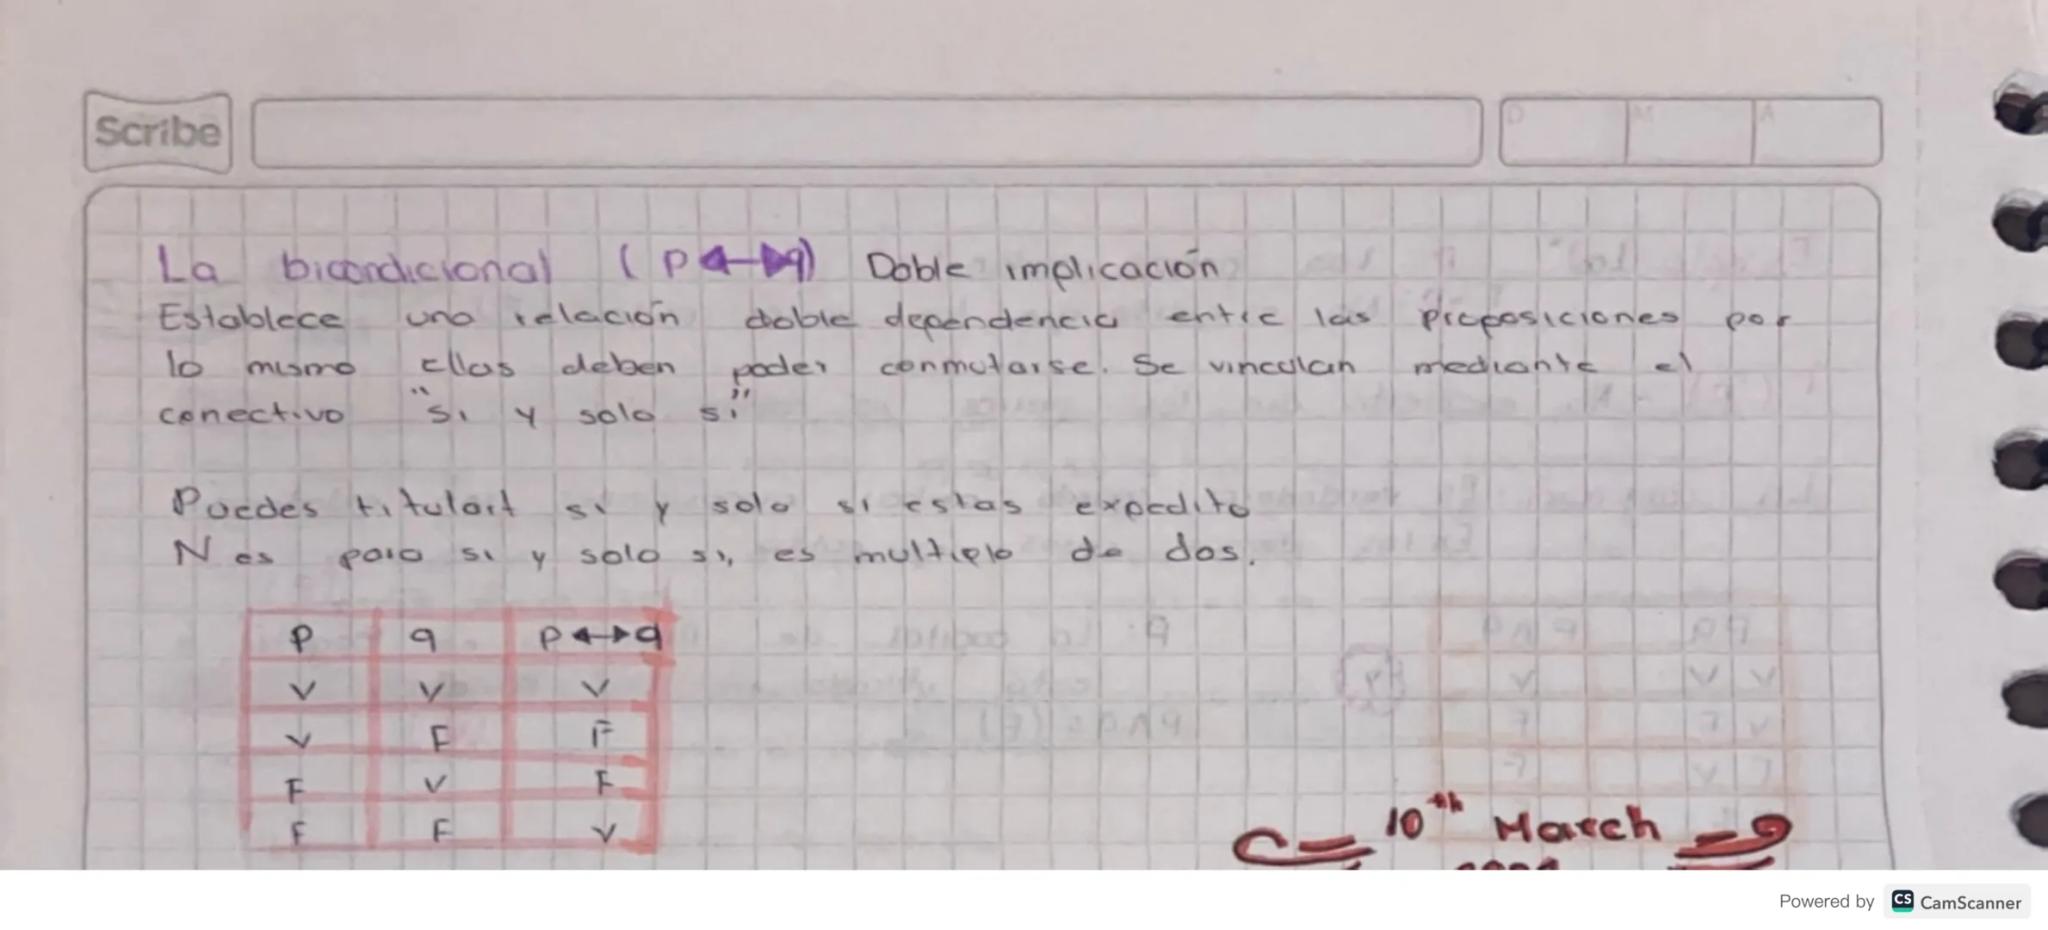 Scribe
D M A
La bicondicional (p ◄─► q) Doble implicación
Establece una relación doble dependencia entre las proposiciones por
lo mismo ellas deben poder conmutarse. Se vinculan mediante el
conectivo "si y solo si"
Puedes titulart si y solo si estas expedito
N es para si y solo si, es multiplo de dos.
p q p◄─►q
V V V
V F F
F V F
F F V
10th March
Powered by CS CamScanner